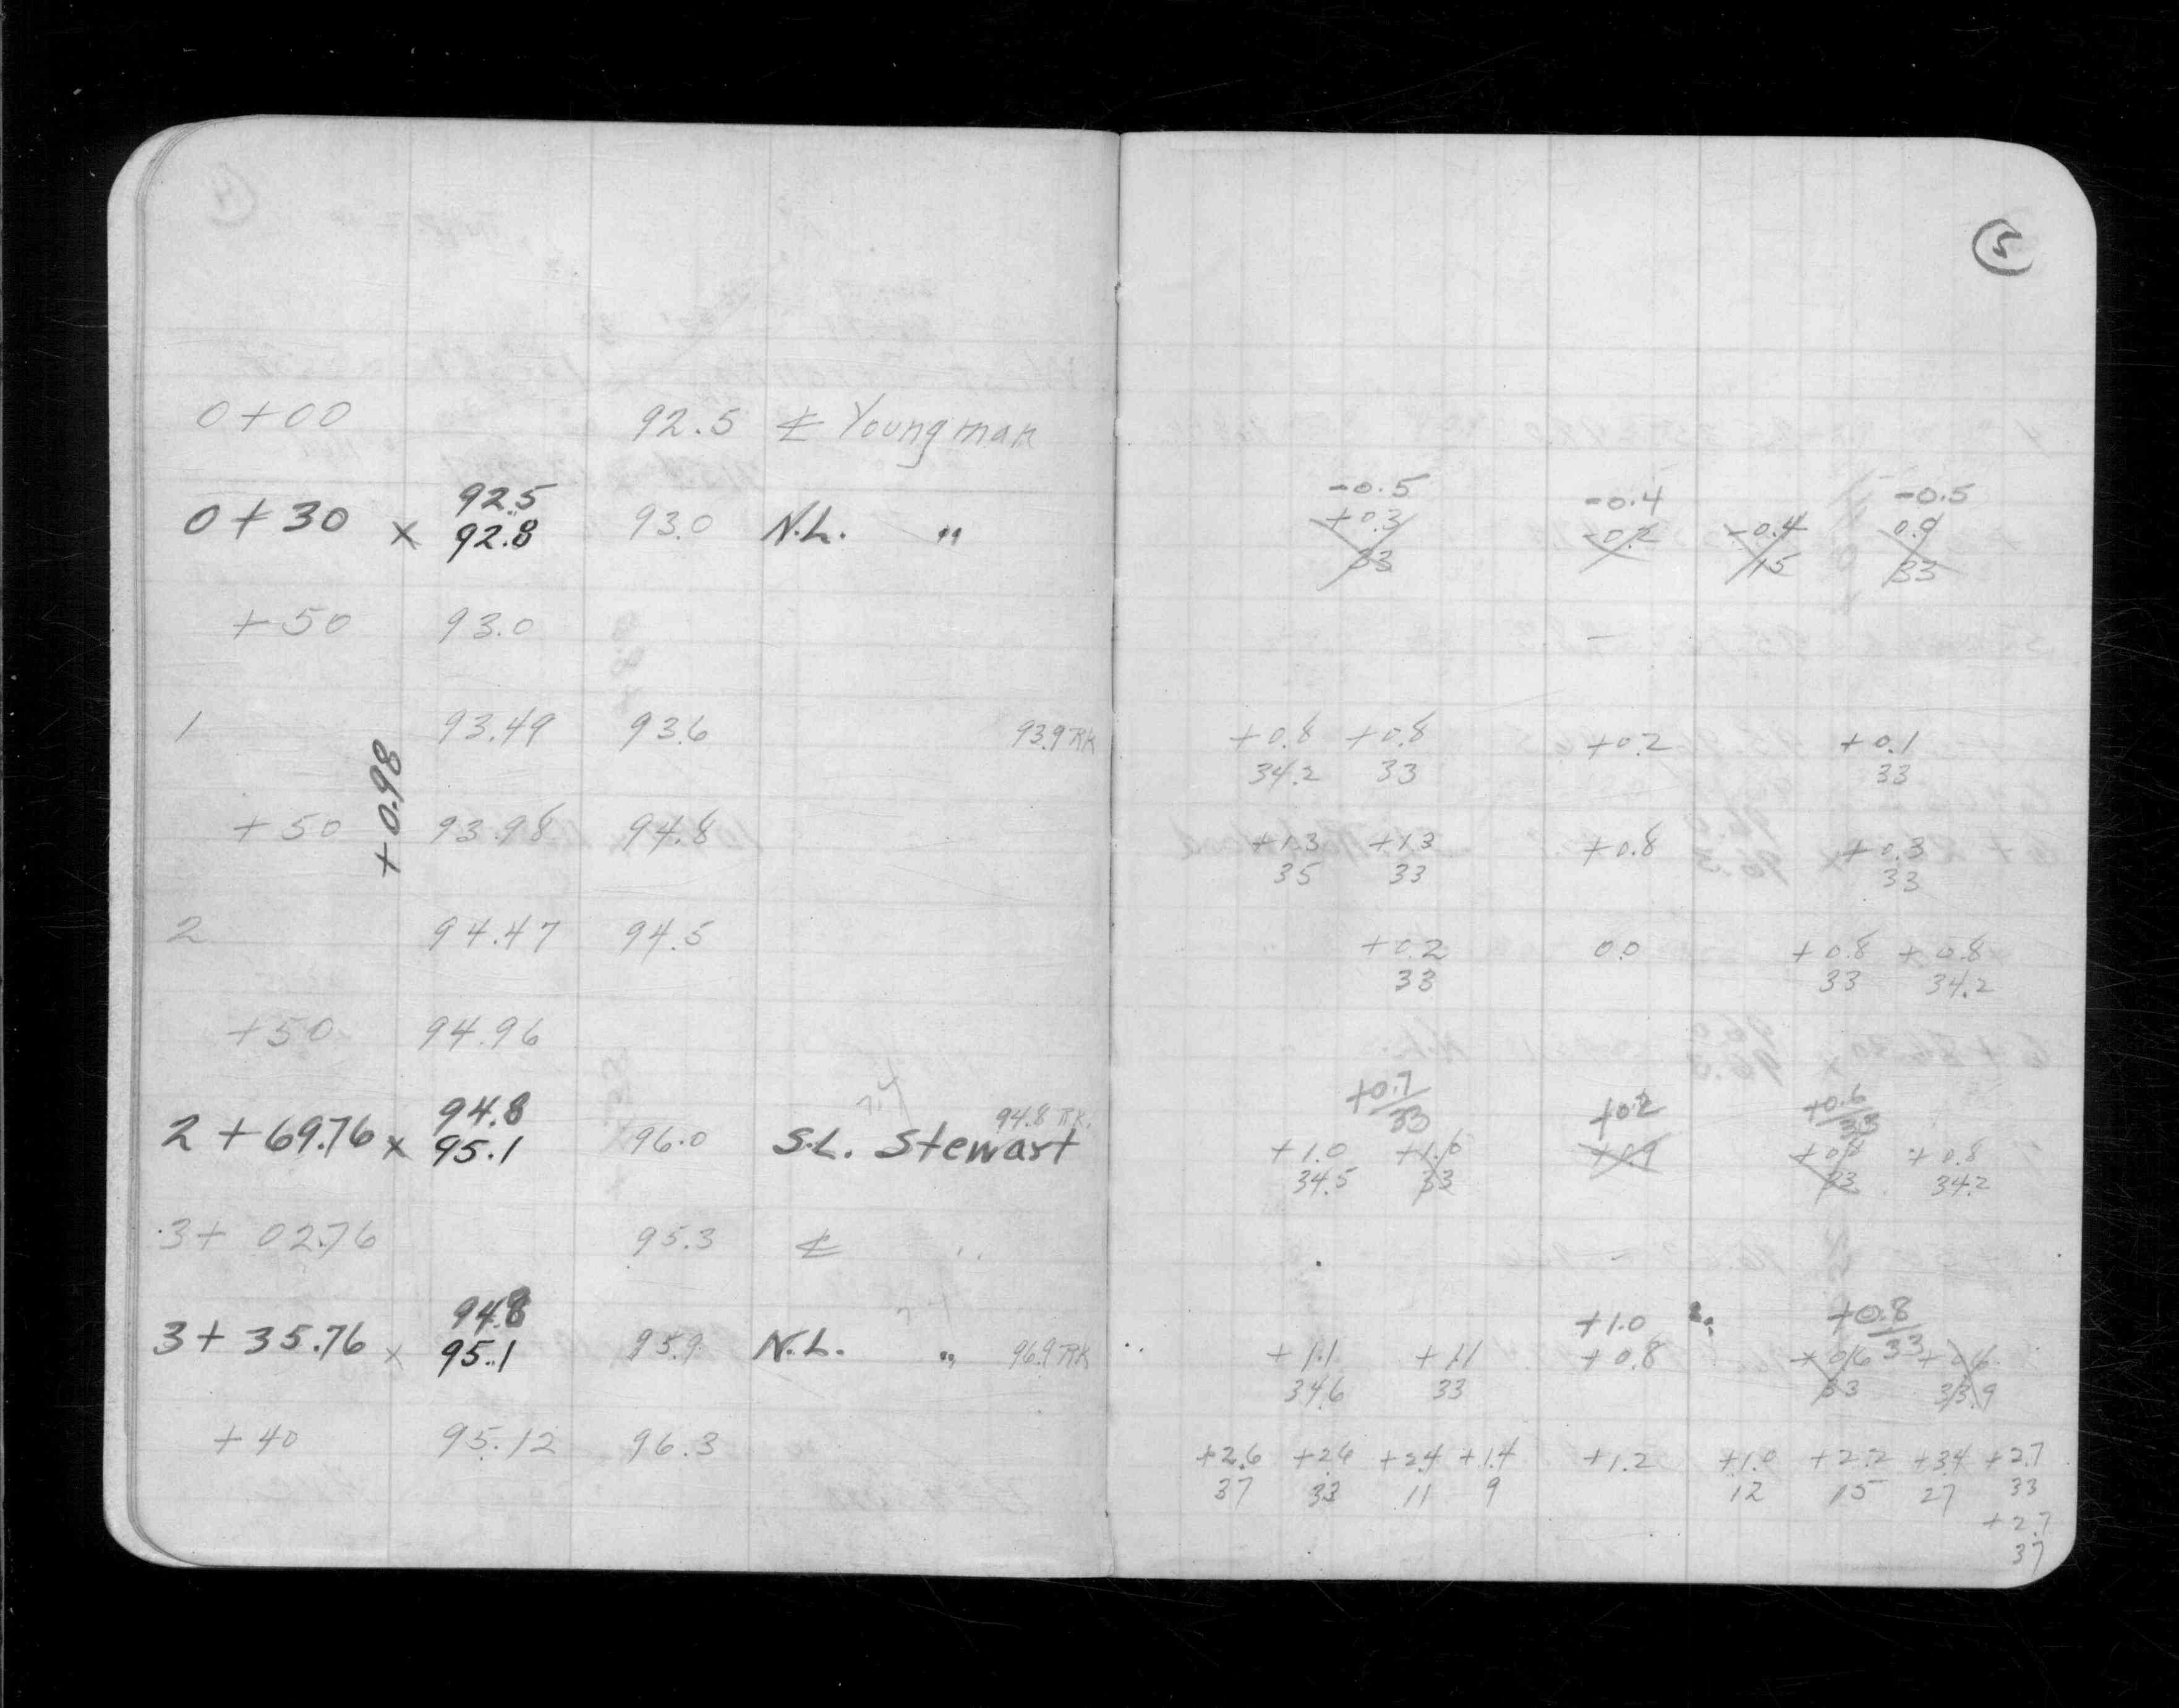 5
0+00 92.5 ℄ Youngman
-0.5 -0.4 -0.5
92.5
0+30 x 92.8 93.0 N.L. " +0.3 -0.2 -0.4 0.9
33 15 33
+50 93.0
1 93.49 93.6 93.9 RK +0.8 +0.8 +0.2 +0.1
34.2 33 33
+0.98
+50 93.98 94.8 +1.3 +1.3 +0.8 +0.3
35 33 33
2 94.47 94.5 +0.2 0.0 +0.8 +0.8
33 33 34.2
+50 94.96
+0.7 +0.2 +0.6
33 33
94.8 94.8 RK.
2+69.76 x 95.1 96.0 S.L. Stewart +1.0 +1.0 +0.9 +0.8 +0.8
34.5 33 33 34.2
3+02.76 95.3 ℄ "
+1.0 +0.8
33
94.8
3+35.76 x 95.1 95.9 N.L. " 96.9 RK +1.1 +1.1 +0.8 +0.6 +0.6
34.6 33 33 33.9
+40 95.12 96.3 +2.6 +2.6 +2.4 +1.4 +1.2 +1.0 +2.2 +3.4 +2.7
37 33 11 9 12 15 27 33
+2.7
37